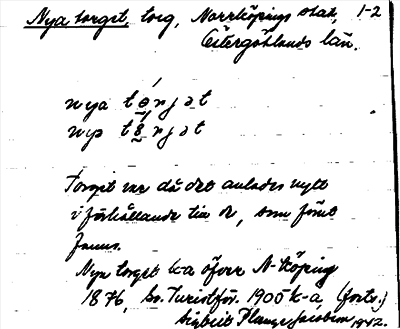 Nya torget, torg, Norrköpings stad, 1-2
Östergötlands län.
nya torjət
nya torjət
Torget var då det anlades nytt
i förhållande till de, som förut
fanns.
Nya torget ka öfver N-köping
1876, Sv. Turistför. 1905 k-a, (forts.)
1942.